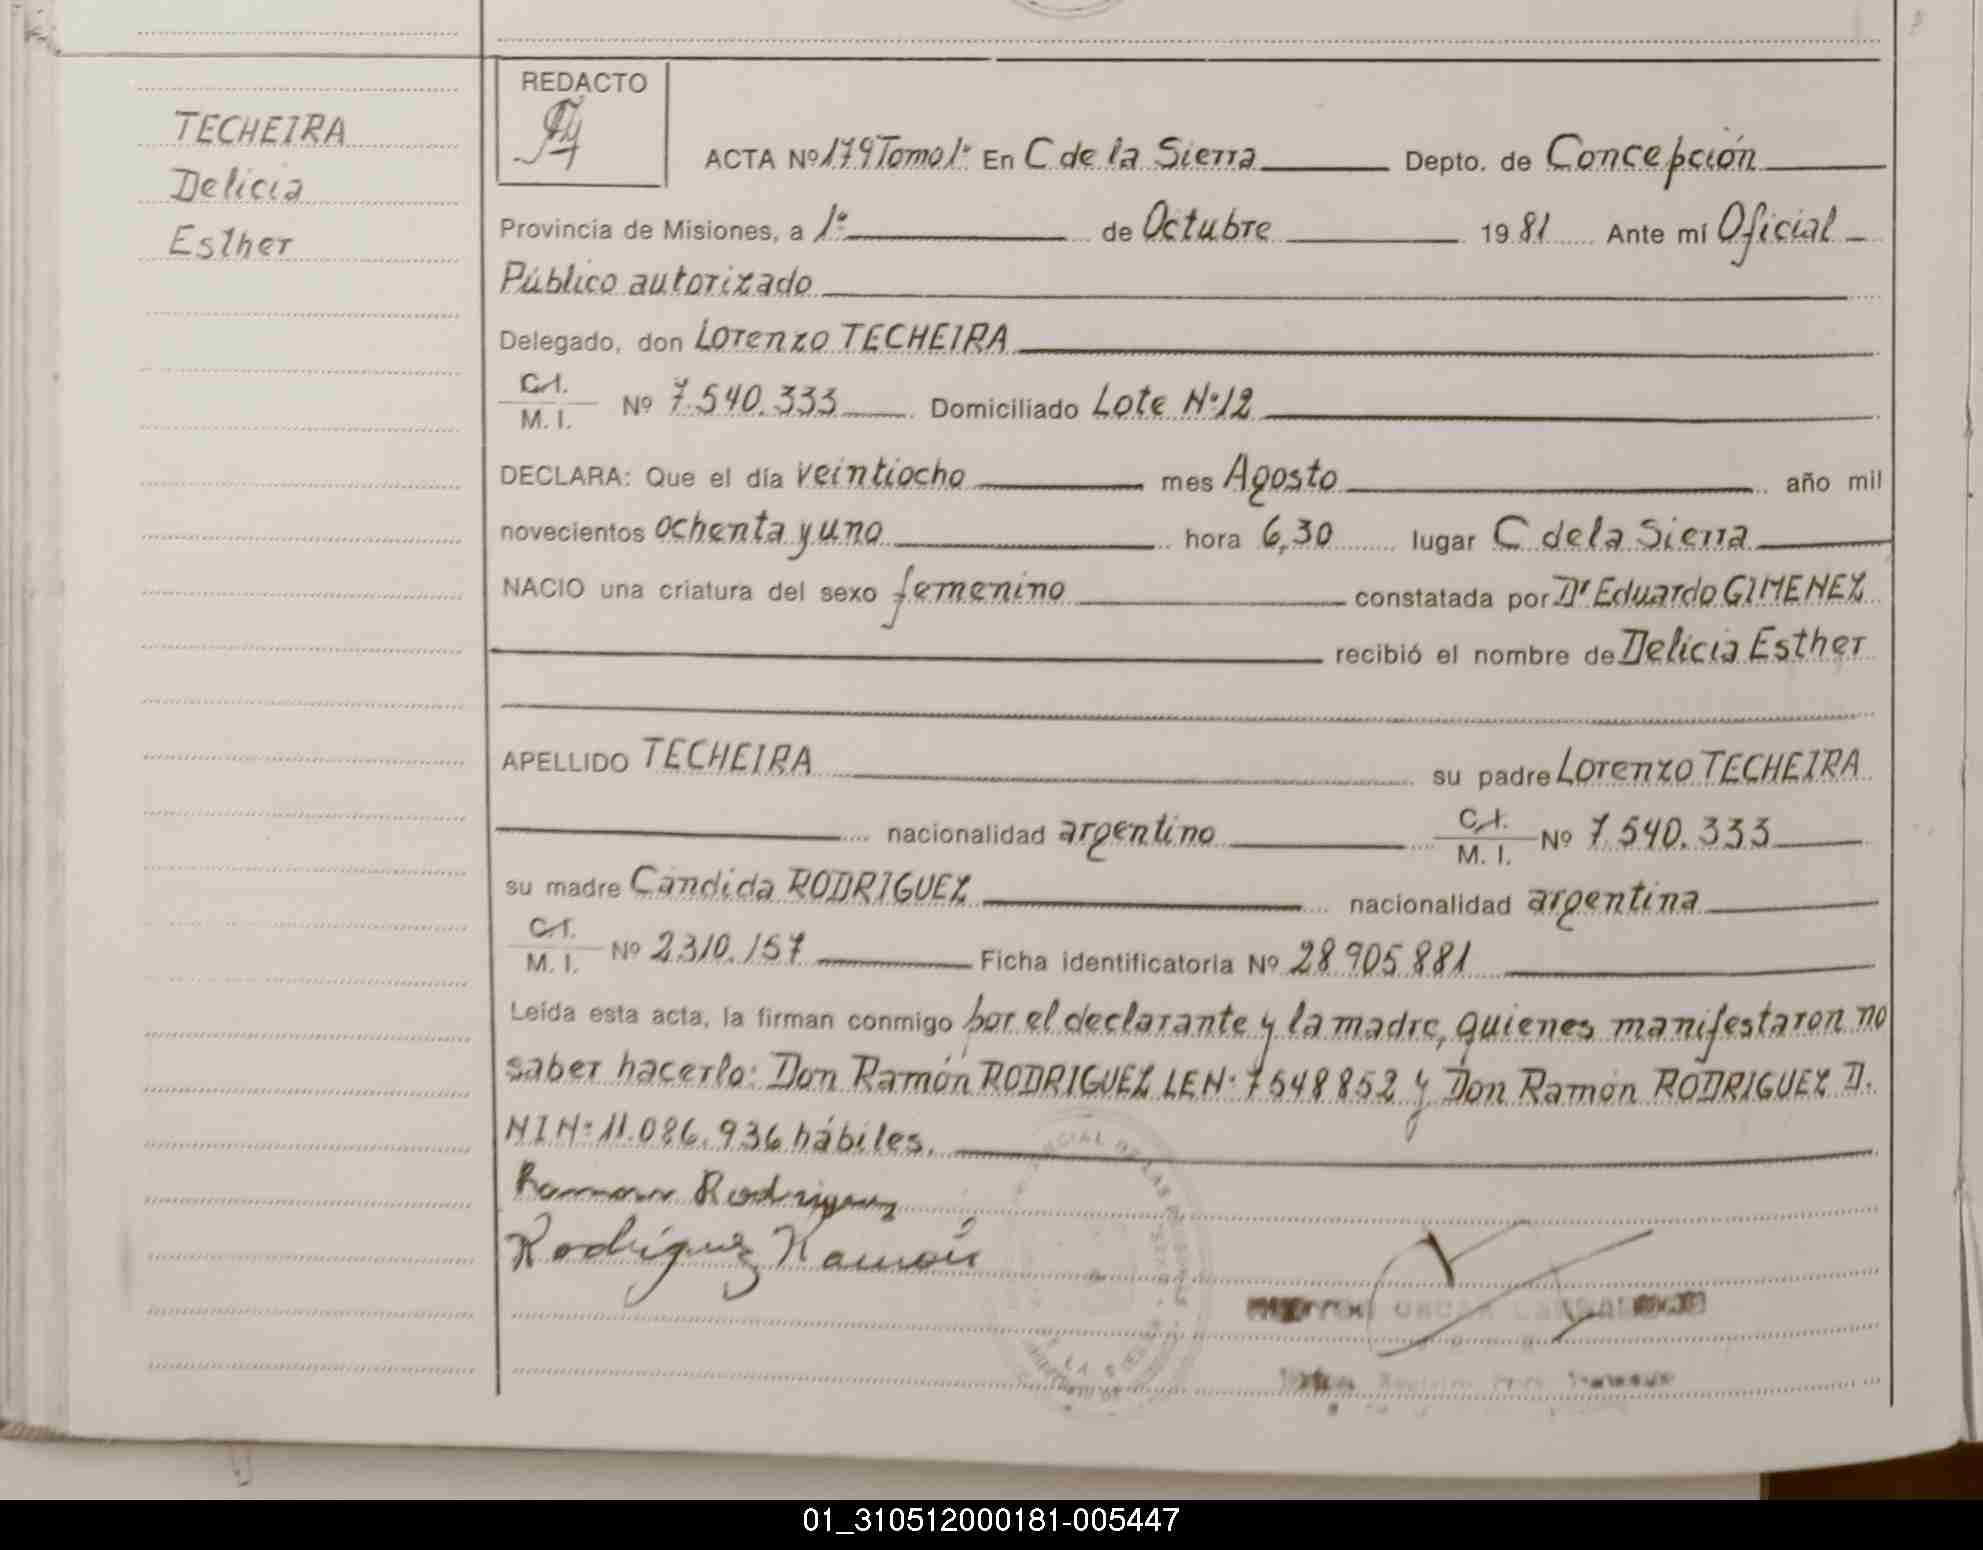 TECHEIRA
Delicia
Esther
REDACTO
ACTA Nº 179 Tomo 1º En C de la Sierra Depto. de Concepción
Provincia de Misiones, a 1º de Octubre 1981 Ante mí Oficial
Público autorizado
Delegado, don Lorenzo TECHEIRA
C.I. M. I. Nº 7.540.333 Domiciliado Lote Nº 12
DECLARA: Que el día veintiocho mes Agosto año mil
novecientos ochenta y uno hora 6,30 lugar C de la Sierra
NACIO una criatura del sexo femenino constatada por Dr Eduardo GIMENEZ
recibió el nombre de Delicia Esther
APELLIDO TECHEIRA su padre Lorenzo TECHEIRA
nacionalidad argentino C.I. M. I. Nº 7.540.333
su madre Candida RODRIGUEZ nacionalidad argentina
C.I. M. I. Nº 2.310.157 Ficha identificatoria Nº 28.905.881
Leída esta acta, la firman conmigo por el declarante y la madre, quienes manifestaron no
saber hacerlo: Don Ramón RODRIGUEZ LE Nº 7548852 y Don Ramón RODRIGUEZ D.
NI Nº 11.086.936 hábiles.
Ramon Rodriguez
Rodriguez Ramón
OSCAR
01_310512000181-005447